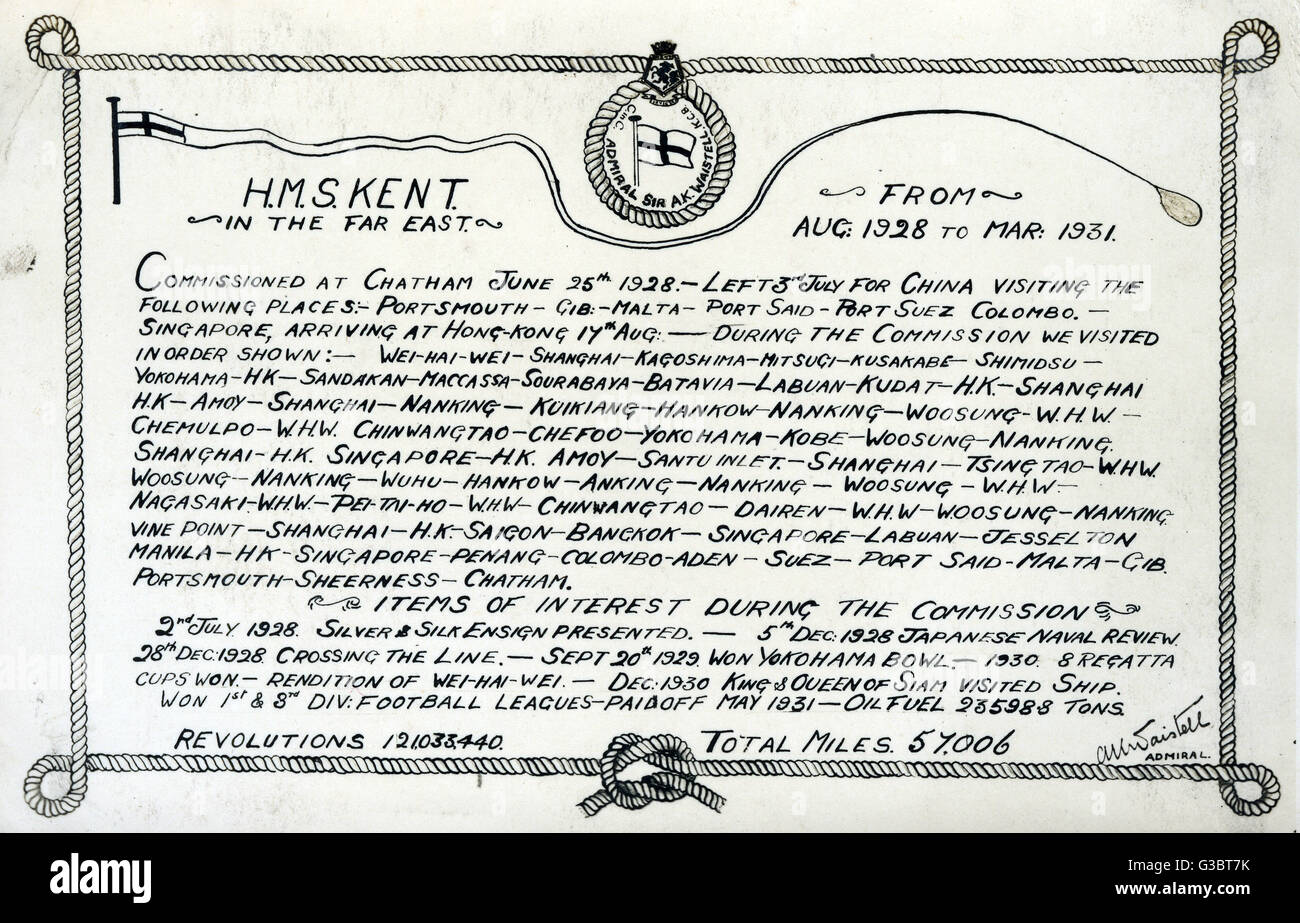 C.in.C. ADMIRAL SIR A.K. WAISTELL. K.C.B.
H.M.S. KENT.
IN THE FAR EAST.
FROM
AUG: 1928 TO MAR: 1931.
COMMISSIONED AT CHATHAM JUNE 25th 1928.— LEFT 3rd JULY FOR CHINA VISITING THE
FOLLOWING PLACES:- PORTSMOUTH - GIB:- MALTA - PORT SAID - PORT SUEZ COLOMBO. —
SINGAPORE, ARRIVING AT HONG-KONG 17th AUG: — DURING THE COMMISSION WE VISITED
IN ORDER SHOWN:— WEI-HAI-WEI - SHANGHAI - KAGOSHIMA - MITSUGI - KUSAKABE - SHIMIDSU —
YOKOHAMA - H.K - SANDAKAN - MACCASSA - SOURABAYA - BATAVIA - LABUAN - KUDAT - H.K - SHANGHAI
H.K - AMOY - SHANGHAI - NANKING - KUIKIANG - HANKOW - NANKING - WOOSUNG - W.H.W —
CHEMULPO - W.H.W. CHINWANGTAO - CHEFOO - YOKOHAMA - KOBE - WOOSUNG - NANKING.
SHANGHAI - H.K. SINGAPORE - H.K. AMOY - SANTU INLET. - SHANGHAI - TSINGTAO - W.H.W.
WOOSUNG - NANKING - WUHU - HANKOW - ANKING - NANKING - WOOSUNG - W.H.W —
NAGASAKI - W.H.W. - PEI-TAI-HO - W.H.W - CHINWANGTAO - DAIREN - W.H.W - WOOSUNG - NANKING
VINE POINT - SHANGHAI - H.K - SAIGON - BANGKOK - SINGAPORE - LABUAN - JESSELTON
MANILA - H.K - SINGAPORE - PENANG - COLOMBO - ADEN - SUEZ - PORT SAID - MALTA - GIB.
PORTSMOUTH - SHEERNESS - CHATHAM.
ITEMS OF INTEREST DURING THE COMMISSION
2nd JULY 1928. SILVER & SILK ENSIGN PRESENTED. — 5th DEC: 1928 JAPANESE NAVAL REVIEW.
28th DEC: 1928. CROSSING THE LINE. — SEPT 20th 1929. WON YOKOHAMA BOWL. — 1930. 8 REGATTA
CUPS WON. - RENDITION OF WEI-HAI-WEI. — DEC: 1930 KING & QUEEN OF SIAM VISITED SHIP.
WON 1st & 3rd DIV: FOOTBALL LEAGUES - PAID OFF MAY 1931 — OIL FUEL 235988 TONS.
REVOLUTIONS 121,033,440.
TOTAL MILES. 57,006
AK Waistell
ADMIRAL.
alamy
Image ID: G3BT7K
www.alamy.com